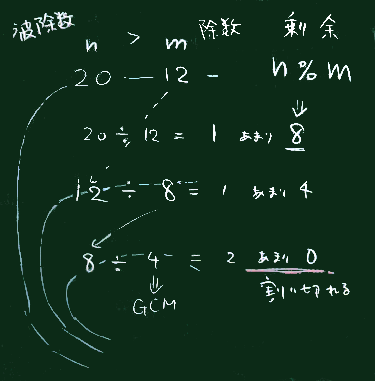 被除数 除数 剰余
n > m
20 — 12 — n % m
↓
20 ÷ 12 = 1 あまり 8
12 ÷ 8 = 1 あまり 4
8 ÷ 4 = 2 あまり 0
↓ 割り切れる
GCM